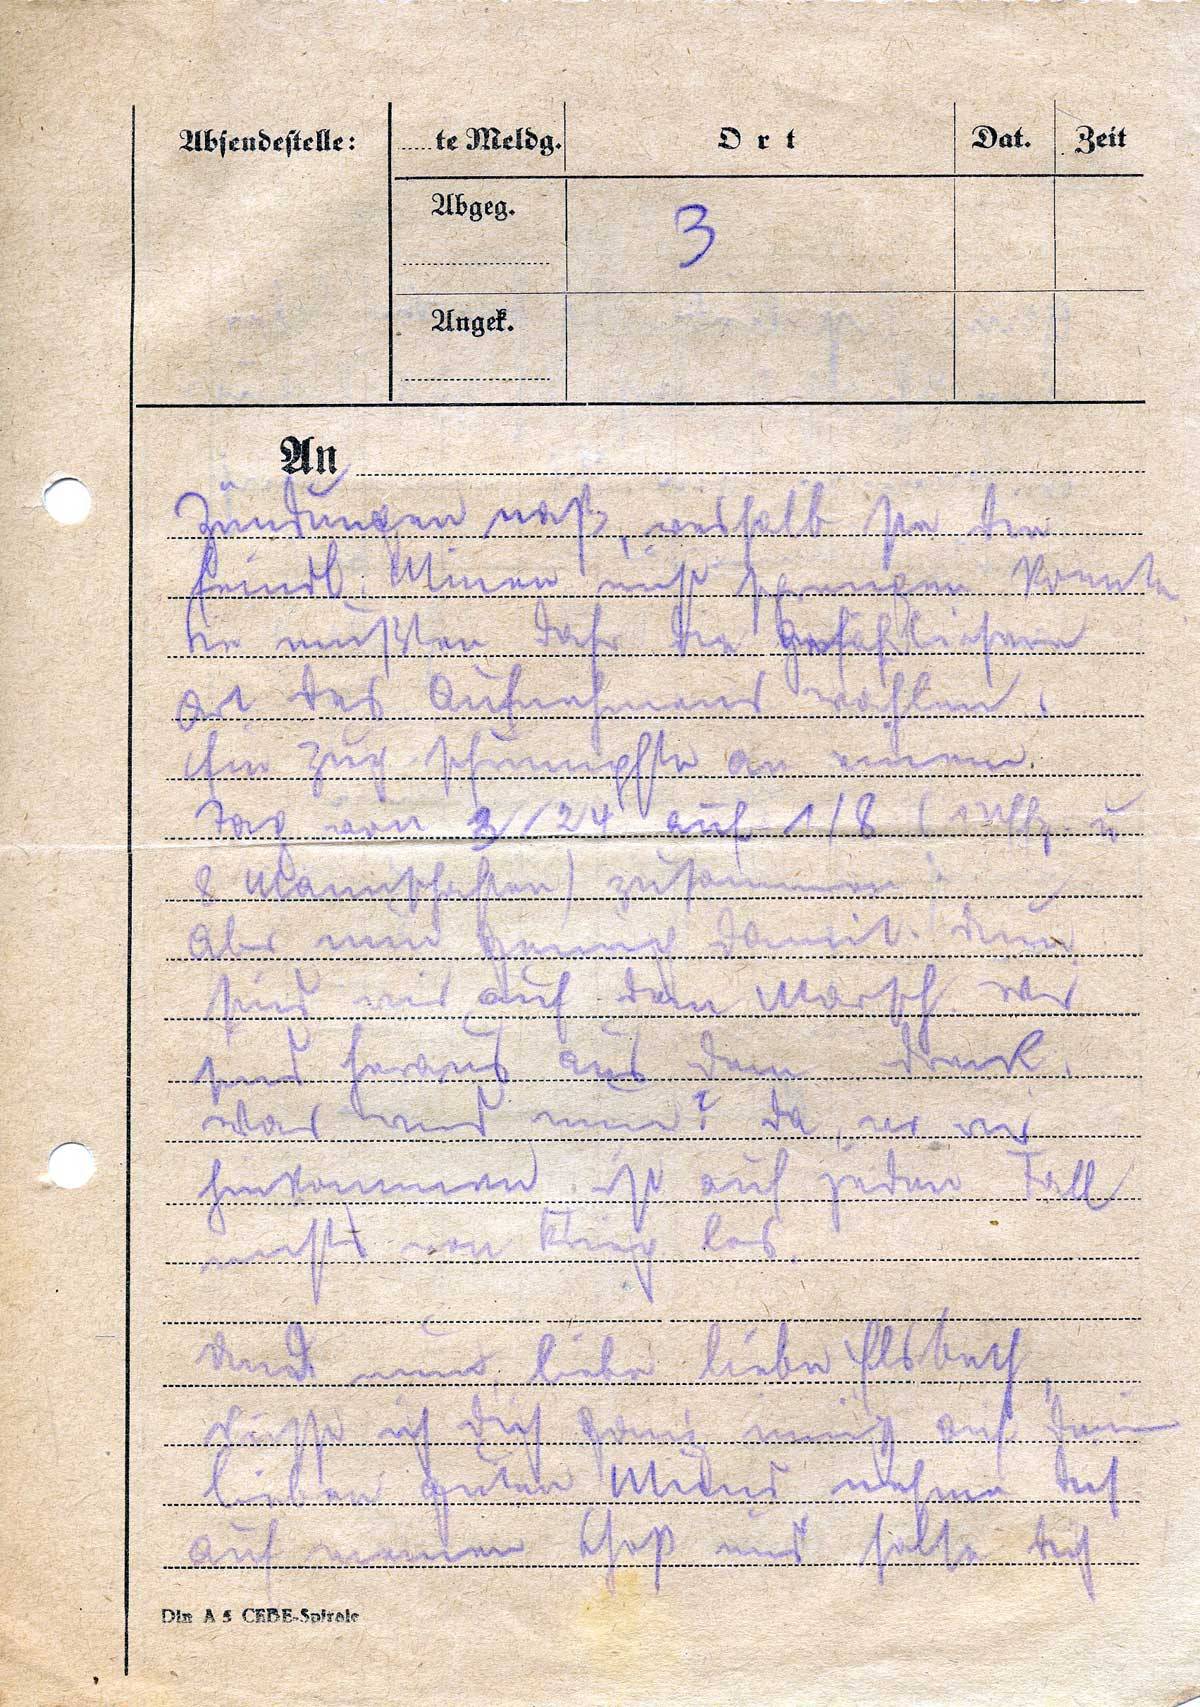 Absendestelle:
.....te Meldg.
Ort
Dat.
Zeit
Abgeg.
3
Angek.
An
Zündungen naß, weshalb sie die
feindl. Minen nicht sprengen konnte
sie mußten dahr die gefährlichere
Art des Aufnehmens wählen.
Ein Zug schrumpfte an einem
Tag von 3/24 auf 1/8 (1 Uffz. u
8 Mannschaften) zusammen.
Aber nun genug damit. Nun
sind wir auf dem Marsch. Wir
sind heraus aus dem Dreck.
Was wird nun? Da, wo wir
hinkommen ist auf jeden Fall
nichts von Krieg los.
Und nun, liebe liebe Elsbeth,
küsse ich dich ganz innig auf dein
lieben guten Mund nehme dich
auf meinen Schoß und halte dich
Din A 5 CEBE-Spirale